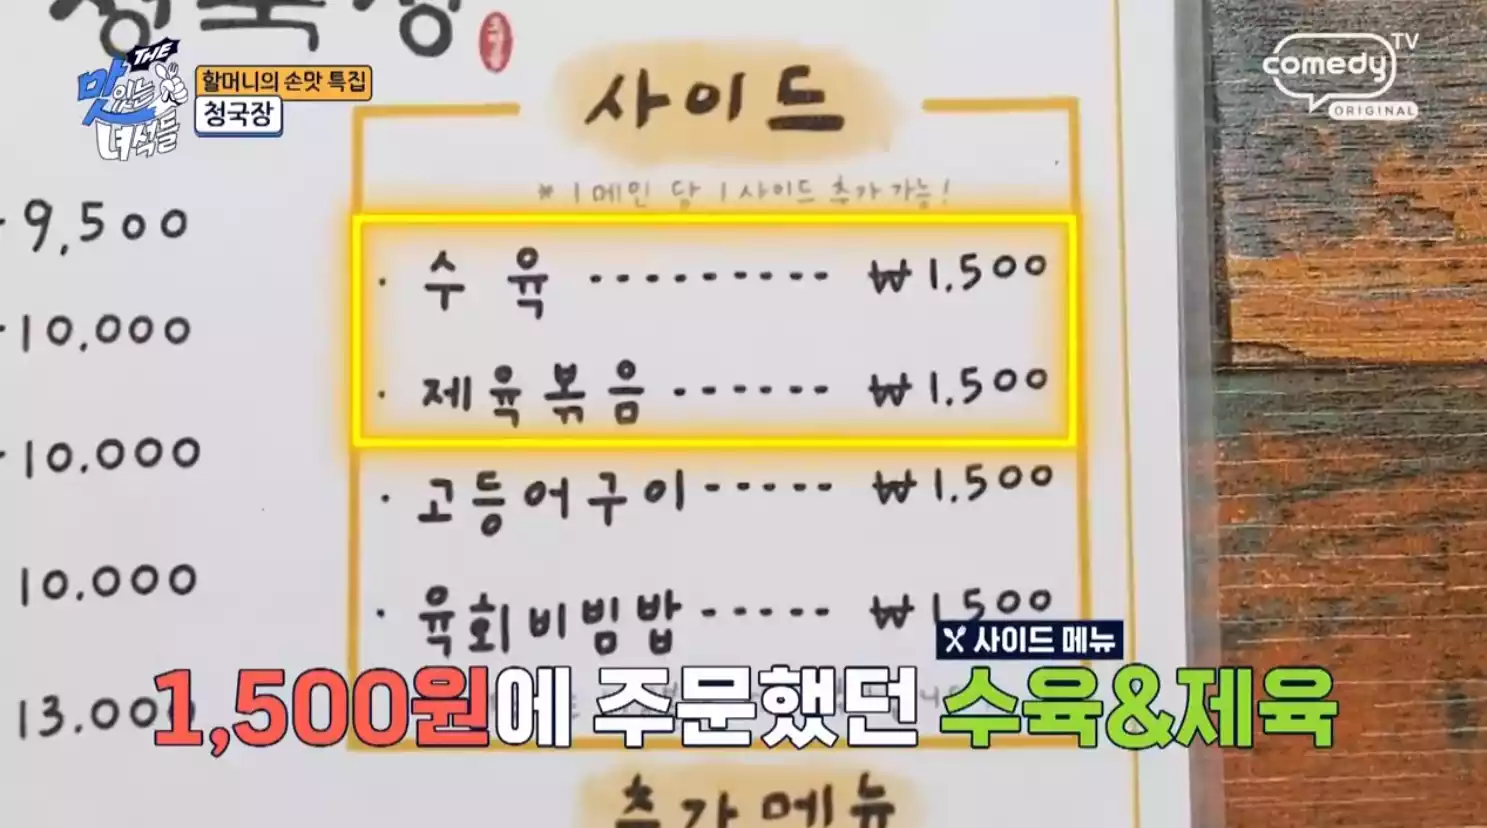 청국장
THE 맛있는 녀석들
할머니의 손맛 특집
청국장
comedy TV
ORIGINAL
사이드
* 1메인 당 1사이드 추가 가능!
9,500
10,000
10,000
10,000
13,000
· 수육 --------- ₩1,500
· 제육볶음 ------ ₩1,500
· 고등어구이 ----- ₩1,500
· 육회비빔밥 ----- ₩1,500
사이드 메뉴
1,500원에 주문했던 수육&제육
추가메뉴